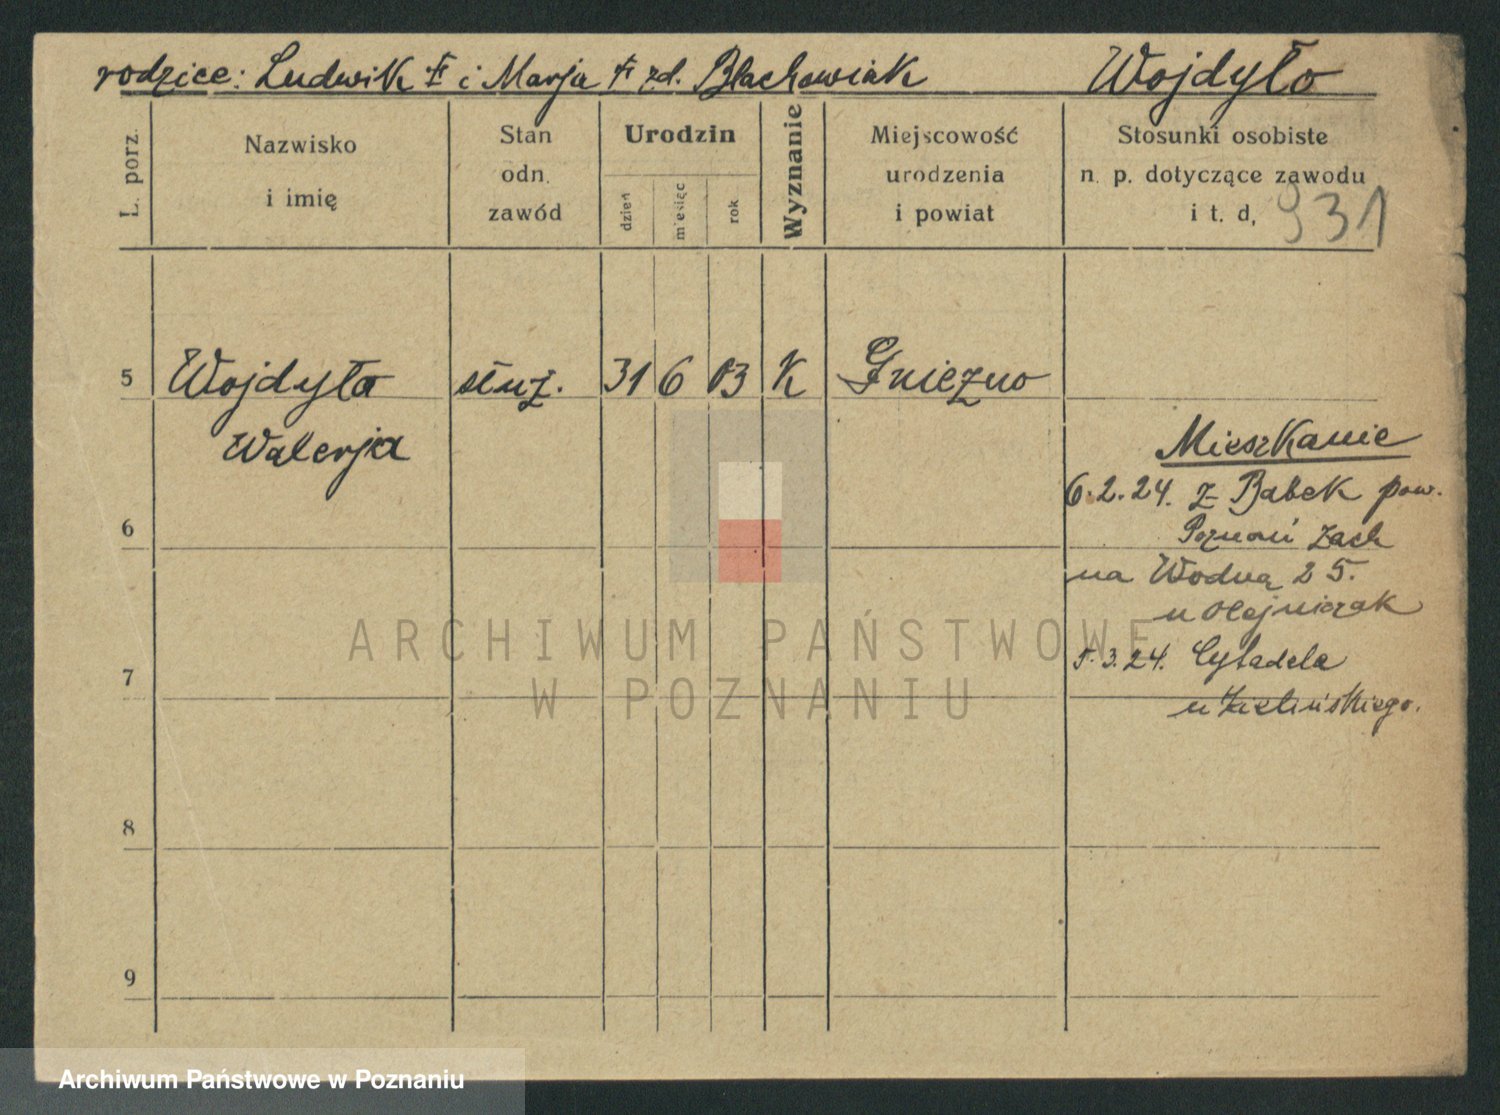 rodzice: Ludwik † i Marja † zd. Blachowiak Wojdyło
L. porz.
Nazwisko
i imię
Stan
odn.
zawód
Urodzin
dzień
miesiąc
rok
Wyznanie
Miejscowość
urodzenia
i powiat
Stosunki osobiste
n. p. dotyczące zawodu
i t. d,
931
5 Wojdyła służ. 31 6 03 K Gniezno
Walerja
Mieszkanie
6.2.24. z Babek pow.
6
Poznań Zach
na Wodną 25.
u Olejniczak
5.3.24. Cytadela
7
u Zielińskiego.
8
9
ARCHIWUM PAŃSTWOWE
W POZNANIU
Archiwum Państwowe w Poznaniu